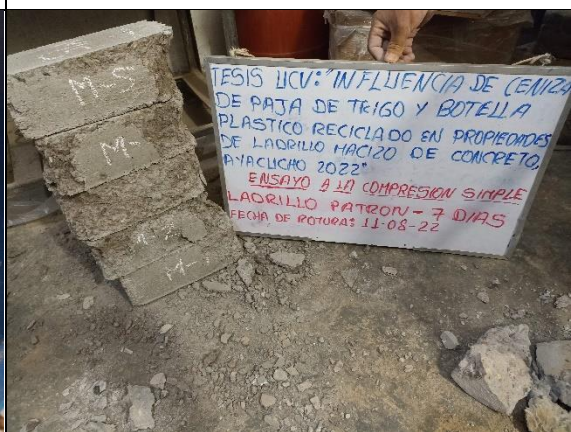 M-5
M-
M-1
TESIS UCV: "INFLUENCIA DE CENIZA
DE PAJA DE TRIGO Y BOTELLA
PLASTICO RECICLADO EN PROPIEDADES
DE LADRILLO MACIZO DE CONCRETO,
AYACUCHO 2022"
ENSAYO A LA COMPRESION SIMPLE
LADRILLO PATRON - 7 DIAS
FECHA DE ROTURA: 11-08-22